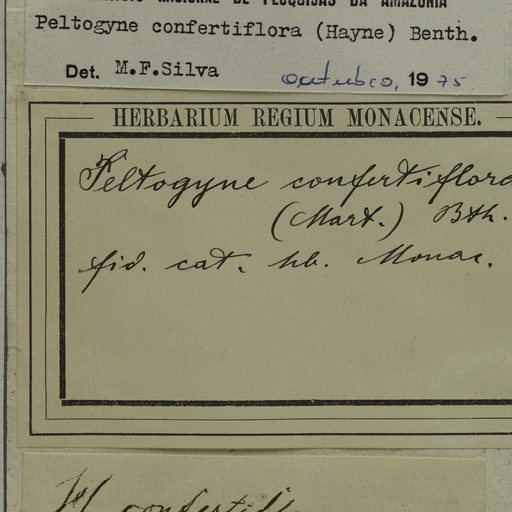 NACIONAL DE PESQUISAS DA AMAZONIA
Peltogyne confertiflora (Hayne) Benth.
Det. M.F.Silva outubro, 1975
HERBARIUM REGIUM MONACENSE.
Peltogyne confertiflora
(Mart.) Bth.
fid. cat. hb. Monac.